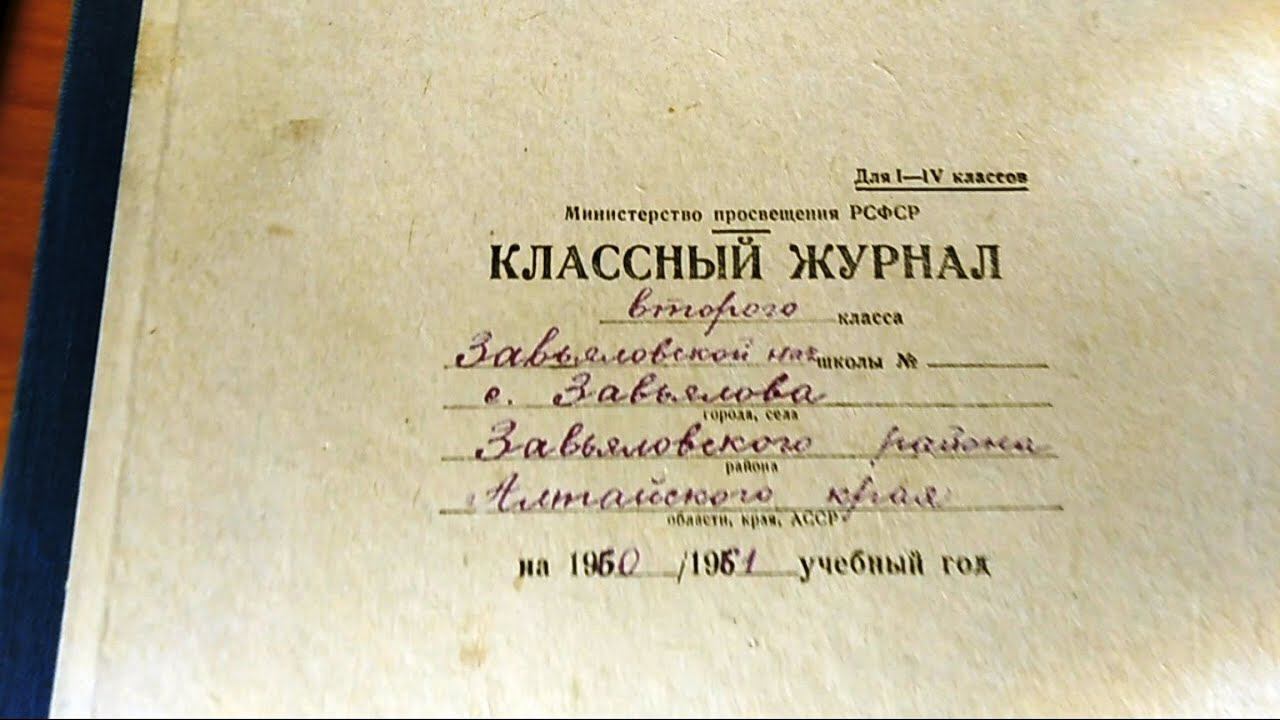 Для I—IV классов
Министерство просвещения РСФСР
КЛАССНЫЙ ЖУРНАЛ
второго класса
Завьяловской нач школы №
с. Завьялова
города, села
Завьяловского района
района
Алтайского края
области, края, АССР
на 1960/1961 учебный год